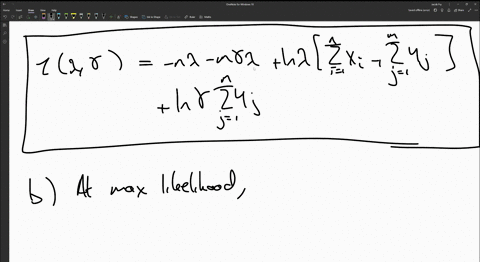 l(λ,γ) = -nλ - nγλ + lnλ [ Σ_{i=1}^{n} x_i + Σ_{j=1}^{n} y_j ]
+ lnγ Σ_{j=1}^{n} y_j
b) At max likelihood,